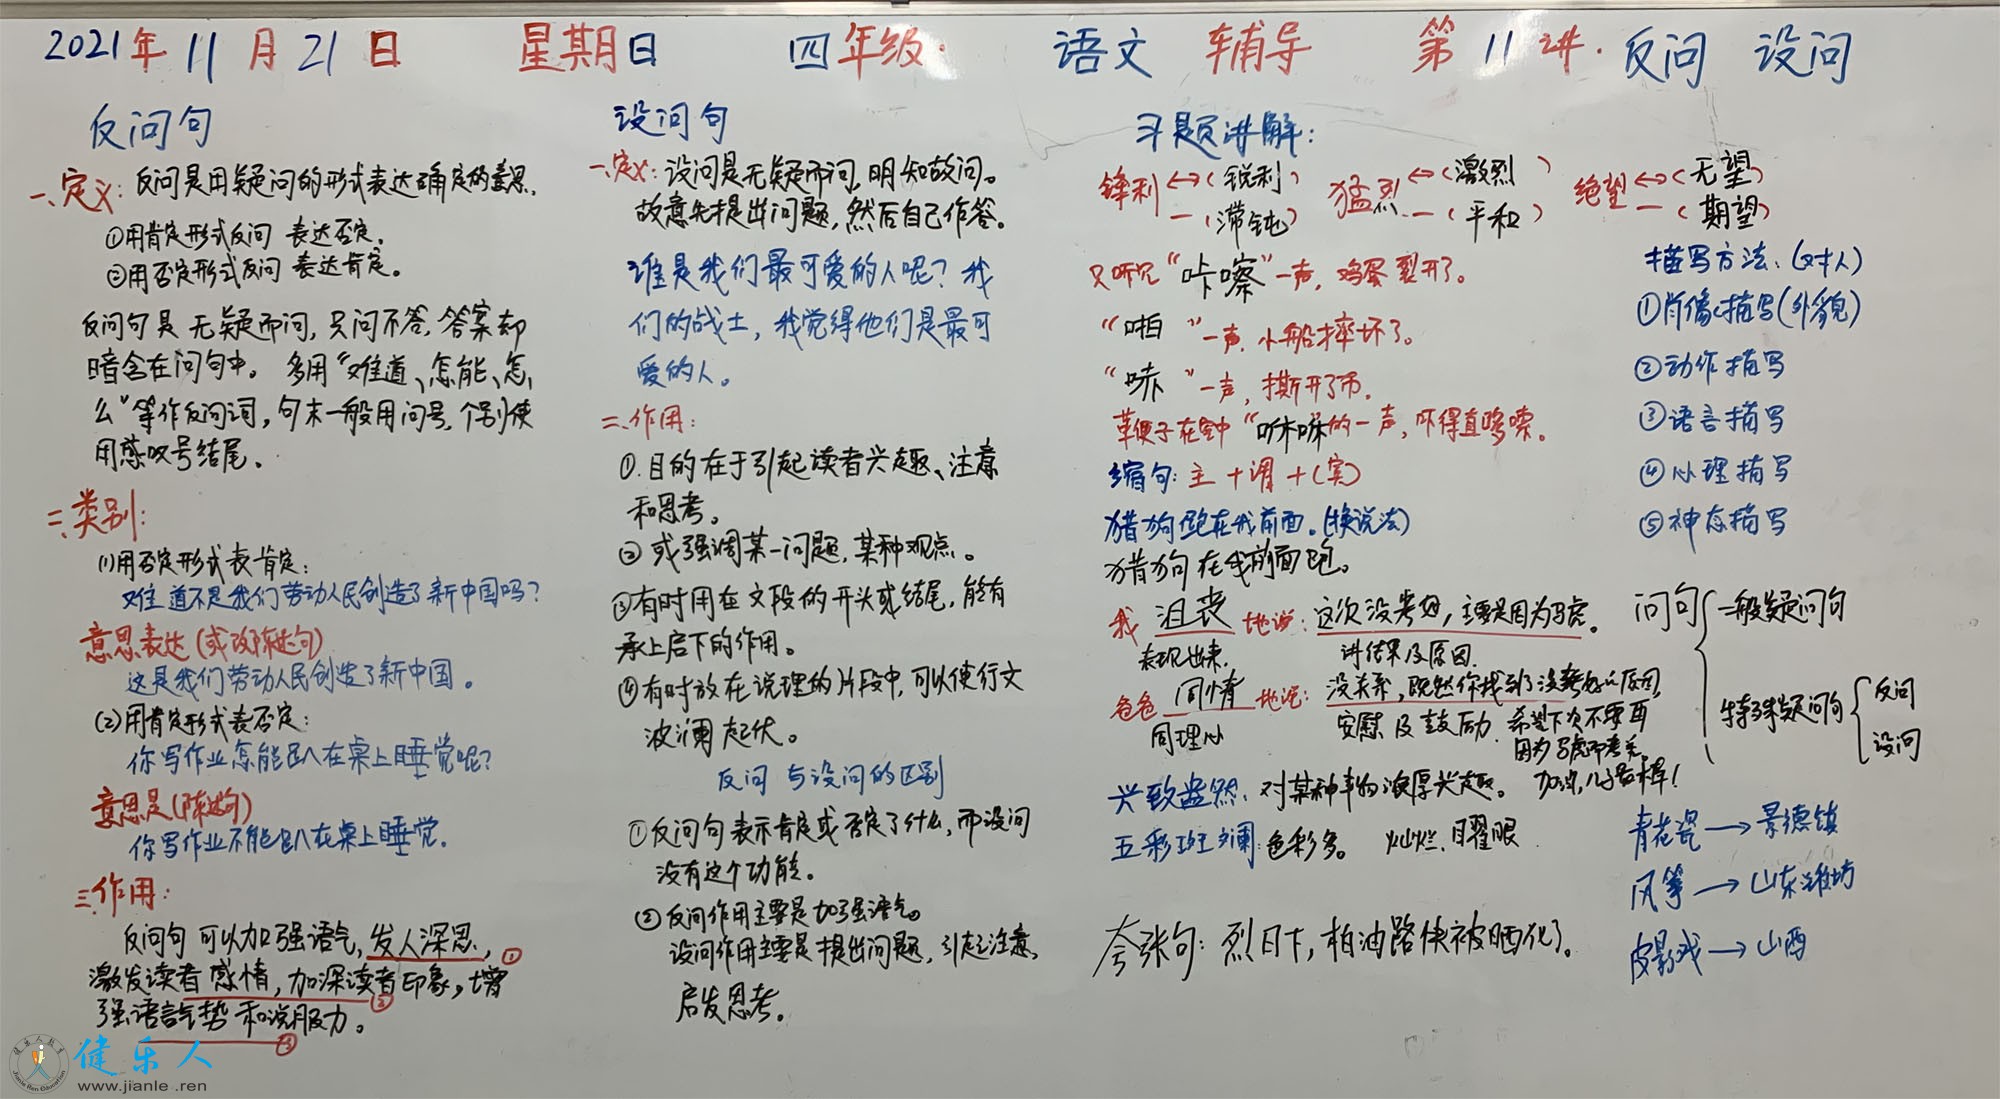 2021年11月21日 星期日 四年级. 语文 辅导 第11讲. 反问 设问
反问句
一、定义: 反问是用疑问的形式表达确定的意思.
①用肯定形式反问 表达否定.
②用否定形式反问 表达肯定。
反问句是 无疑而问, 只问不答, 答案却
暗含在问句中。 多用“难道、怎能、怎
么”等作反问词, 句末一般用问号, 个别使
用感叹号结尾。
二、类别:
(1)用否定形式表肯定:
难道不是我们劳动人民创造了新中国吗?
意思表达(或改陈述句)
这是我们劳动人民创造了新中国。
(2)用肯定形式表否定:
你写作业怎能趴在桌上睡觉呢?
意思是(陈述句)
你写作业不能趴在桌上睡觉.
三、作用:
反问句 可以加强语气, 发人深思, ①
激发读者 感情, 加深读者印象, 增 ②
强语言气势 和说服力。 ③
设问句
一、定义: 设问是无疑而问, 明知故问。
故意先提出问题, 然后自己作答。
谁是我们最可爱的人呢? 我
们的战士, 我觉得他们是最可
爱的人。
二、作用:
①. 目的在于引起读者兴趣、注意
和思考。
② 或强调某一问题, 某种观点。
③有时用在文段的开头或结尾, 能有
承上启下的作用。
④有时放在说理的片段中, 可以使行文
波澜起伏。
反问 与设问的区别
①反问句表示肯定或否定了什么, 而设问
没有这个功能。
②反问作用主要是加强语气。
设问作用主要是提出问题, 引起注意,
启发思考。
习题讲解:
锋利 ↔ (锐利)
— (滞钝)
猛烈 ↔ (激烈)
— (平和)
绝望 ↔ (无望)
— (期望)
只听见“咔嚓”一声, 鸡蛋裂开了。
“啪”一声, 小船摔坏了。
“哧”一声, 撕开了布.
缩句: 主 + 谓 + (宾)
猎狗跑在我前面。(换说法)
猎狗在我前面跑。
我 沮丧 地说: 这次没考好, 主要是因为马虎。
表现出来. 讲结果及原因.
爸爸 同情 地说: 没关系, 既然你找到了没考好的原因,
同理心 安慰 及 鼓励. 希望下次不要再
因为马虎而考差
加油, 儿子最棒!
兴致盎然: 对某种事物浓厚兴趣。
五彩斑斓: 色彩多。 灿烂. 耀眼
夸张句: 烈日下, 柏油路快被晒化了。
描写方法: (对人)
①肖像描写(外貌)
②动作描写
③语言描写
④心理描写
⑤神态描写
问句 { 一般疑问句
特殊疑问句 { 反问
设问
青花瓷 → 景德镇
风筝 → 山东潍坊
皮影戏 → 山西
健乐人
www.jianle .ren